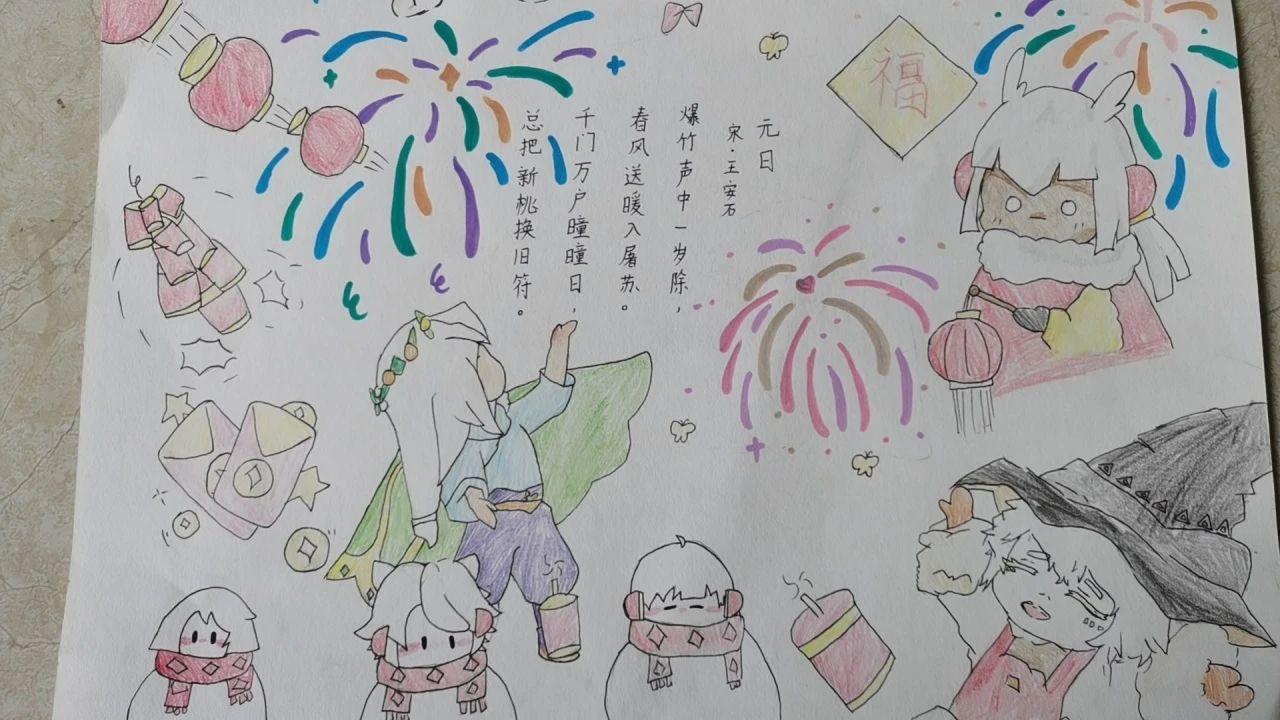 元日
宋·王安石
爆竹声中一岁除，
春风送暖入屠苏。
千门万户曈曈日，
总把新桃换旧符。
福